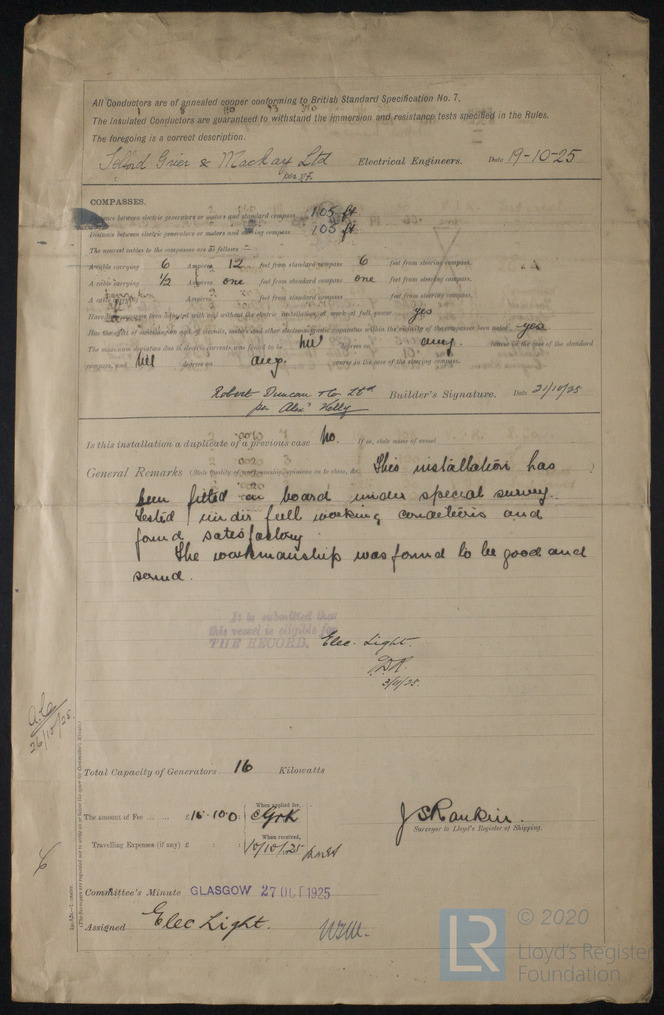 All Conductors are of annealed copper conforming to British Standard Specification No. 7.
The Insulated Conductors are guaranteed to withstand the immersion and resistance tests specified in the Rules.
The foregoing is a correct description.
Telford Grier & Mackay Ltd Electrical Engineers. Date 19-10-25
COMPASSES.
Distance between electric generators or motors and standard compass 105 ft
Distance between electric generators or motors and steering compass 105 ft
The nearest cables to the compasses are as follows :—
A cable carrying 6 Amperes 12 feet from standard compass 6 feet from steering compass.
A cable carrying 1/2 Amperes one feet from standard compass one feet from steering compass.
A cable carrying Amperes feet from standard compass feet from steering compass.
Have the compasses been adjusted with and without the electric installation at work at full power yes
yes
The maximum deviation due to electric currents was found to be nil degrees on any course in the case of the standard
compass, and nil degrees on any course in the case of the steering compass.
Robert Duncan & Co Ltd Builder's Signature. Date 21/10/25
per Alexr Kelly
Is this installation a duplicate of a previous case No. If so, state name of vessel
General Remarks This installation has
been fitted on board under special survey.
Tested under full working conditions and
found satisfactory
The workmanship was found to be good and
sound.
It is submitted that
this vessel is eligible for
THE RECORD. Elec. Light.
26/10/25.
Total Capacity of Generators 16 Kilowatts
The amount of Fee ... ... £ 16 : 10 : 0 When applied for,
Travelling Expenses (if any) £ : : When received,
J S Rankin.
Surveyor to Lloyd's Register of Shipping.
Committee's Minute GLASGOW 27 OCT 1925
Assigned Elec Light.
LR © 2020
Lloyd's Register
Foundation